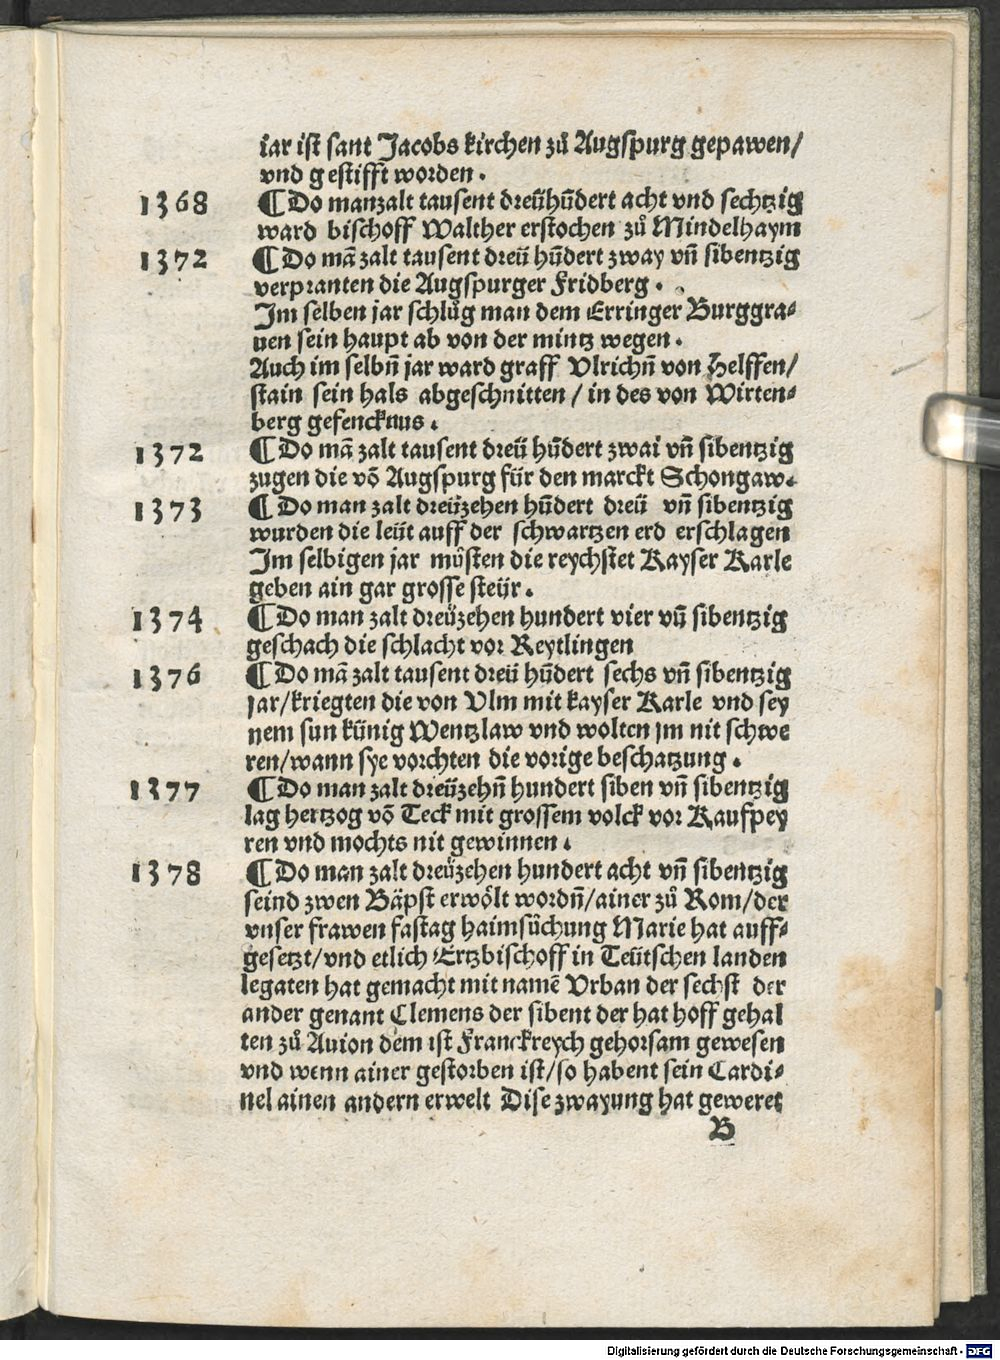 iar ist sant Jacobs kirchen zů Augspurg gepawen/
vnd gestifft worden.
1368 ¶Do manzalt tausent dreühūdert acht vnd sechtzig
ward bischoff Walther erstochen zů Mindelhaym
1372 ¶Do mā zalt tausent dreü hūdert zway vn̄ sibentzig
verpranten die Augspurger Fridberg.
Im selben jar schlůg man dem Erringer Burggra⸗
uen sein haupt ab von der mintz wegen.
Auch im selbn̄ jar ward graff Vlrichn̄ von Helffen/
stain sein hals abgeschnitten / in des von Wirten⸗
berg gefencknus.
1372 ¶Do mā zalt tausent dreü hūdert zwai vn̄ sibentzig
zugen die vō Augspurg für den marckt Schongaw.
1373 ¶Do man zalt dreüzehen hūdert dreü vn̄ sibentzig
wurden die leüt auff der schwartzen erd erschlagen
Im selbigen jar můsten die reychstet Kayser Karle
geben ain gar grosse steür.
1374 ¶Do man zalt dreüzehen hundert vier vn̄ sibentzig
geschach die schlacht vor Reytlingen
1376 ¶Do mā zalt tausent dreü hūdert sechs vn̄ sibentzig
jar/kriegten die von Vlm mit kayser Karle vnd sey
nem sun künig Wentzlaw vnd wolten jm nit schwe
ren/wann sye vorchten die vorige beschatzung.
1377 ¶Do man zalt dreüzehn̄ hundert siben vn̄ sibentzig
lag hertzog vō Teck mit grossem volck vor Kaufpey
ren vnd mochts nit gewinnen.
1378 ¶Do man zalt dreüzehen hundert acht vn̄ sibentzig
seind zwen Bäpst erwölt wordn̄/ainer zů Rom/der
vnser frawen fastag haimsůchung Marie hat auff⸗
gesetzt/vnd etlich Ertzbischoff in Teütschen landen
legaten hat gemacht mit namē Vrban der sechst der
ander genant Clemens der sibent der hat hoff gehal
ten zů Auion dem ist Franckreych gehorsam gewesen
vnd wenn ainer gestorben ist/so habent sein Cardi⸗
nel ainen andern erwelt Dise zwayung hat geweret
B
Digitalisierung gefördert durch die Deutsche Forschungsgemeinschaft - DFG